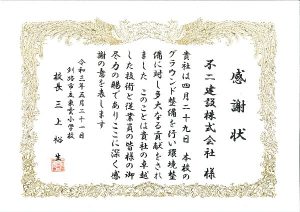 感謝状
不二建設株式会社 様
貴社は四月二十九日 本校の
グラウンド整備を行い環境整
備に対し多大なる貢献をされ
ました このことは貴社の卓越
した技術と従業員の皆様の御
尽力の賜でありここに深く感
謝の意を表します
令和三年五月二十一日
釧路市立東雲小学校
校長 三上裕